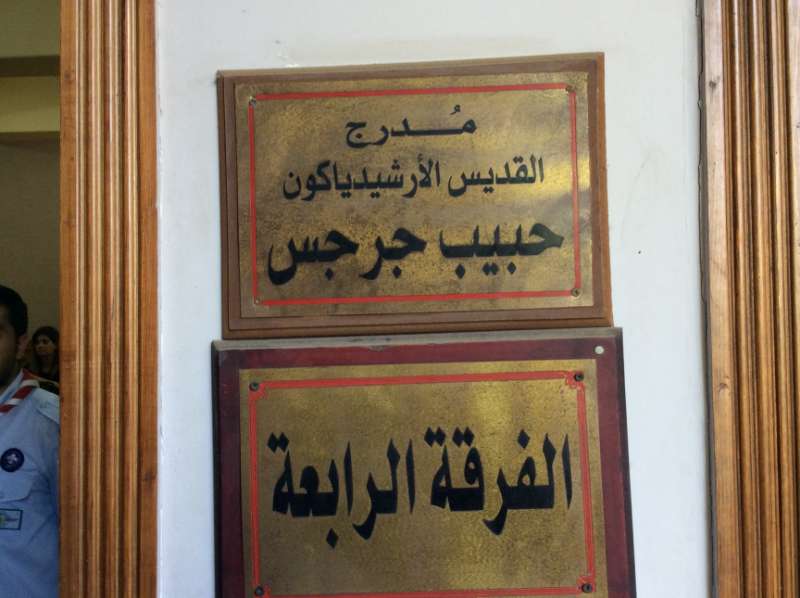 مُدرج
القديس الأرشيدياكون
حبيب جرجس
الفرقة الرابعة